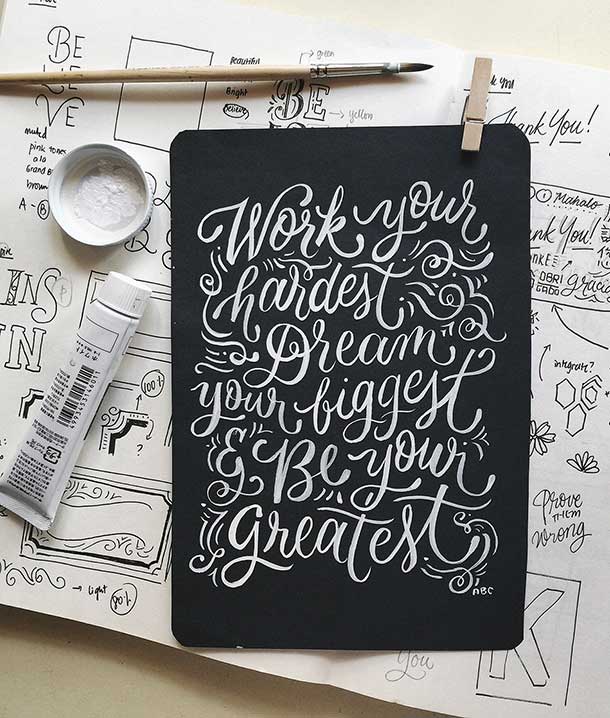 BE
LIE
VE
muted
pink tones
a la
GRAND B
brown
A - B
INS
beautiful
Bright
Believe
green
BE
yellow
Work your
hardest.
Dream
your biggest
& Be your
greatest
ABC
Thank You!
1 Mahalo
nk You!
OBRI
GADO
gracia
integrate?
PROVE
THEM
Wrong
K
You
100%
?
light
80%